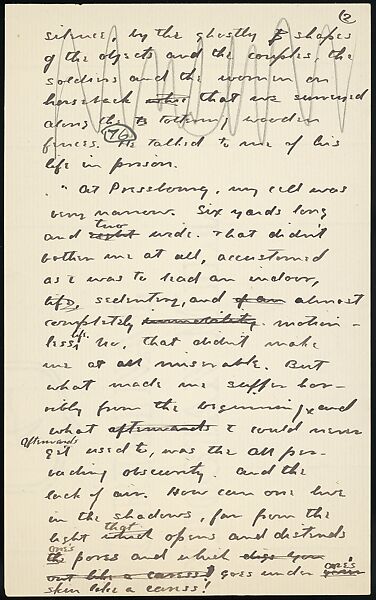 2
silence, by the ghostly shapes
of the objects and the couples, the
soldiers and the women on
horseback that we surveyed
along the tottering wooden
76
fences. He talked to me of his
life in prison.
" At Pressbourg, my cell was
very narrow. Six yards long
and two wide. That didn't
bother me at all, accustomed
as I was to lead an indoor,
life, sedentary, and almost
completely immobility motion-
less life. No, that didn't make
me at all miserable. But
what made me suffer hor-
ribly from the beginning, and
what afterwards I could never
Afterwards
get used to, was the all per-
vading obscurity. and the
lack of air. How can one live
in the shadows, far from the
light that opens and distends
one's pores and which
out like a caress! goes under one's
skin like a caress!